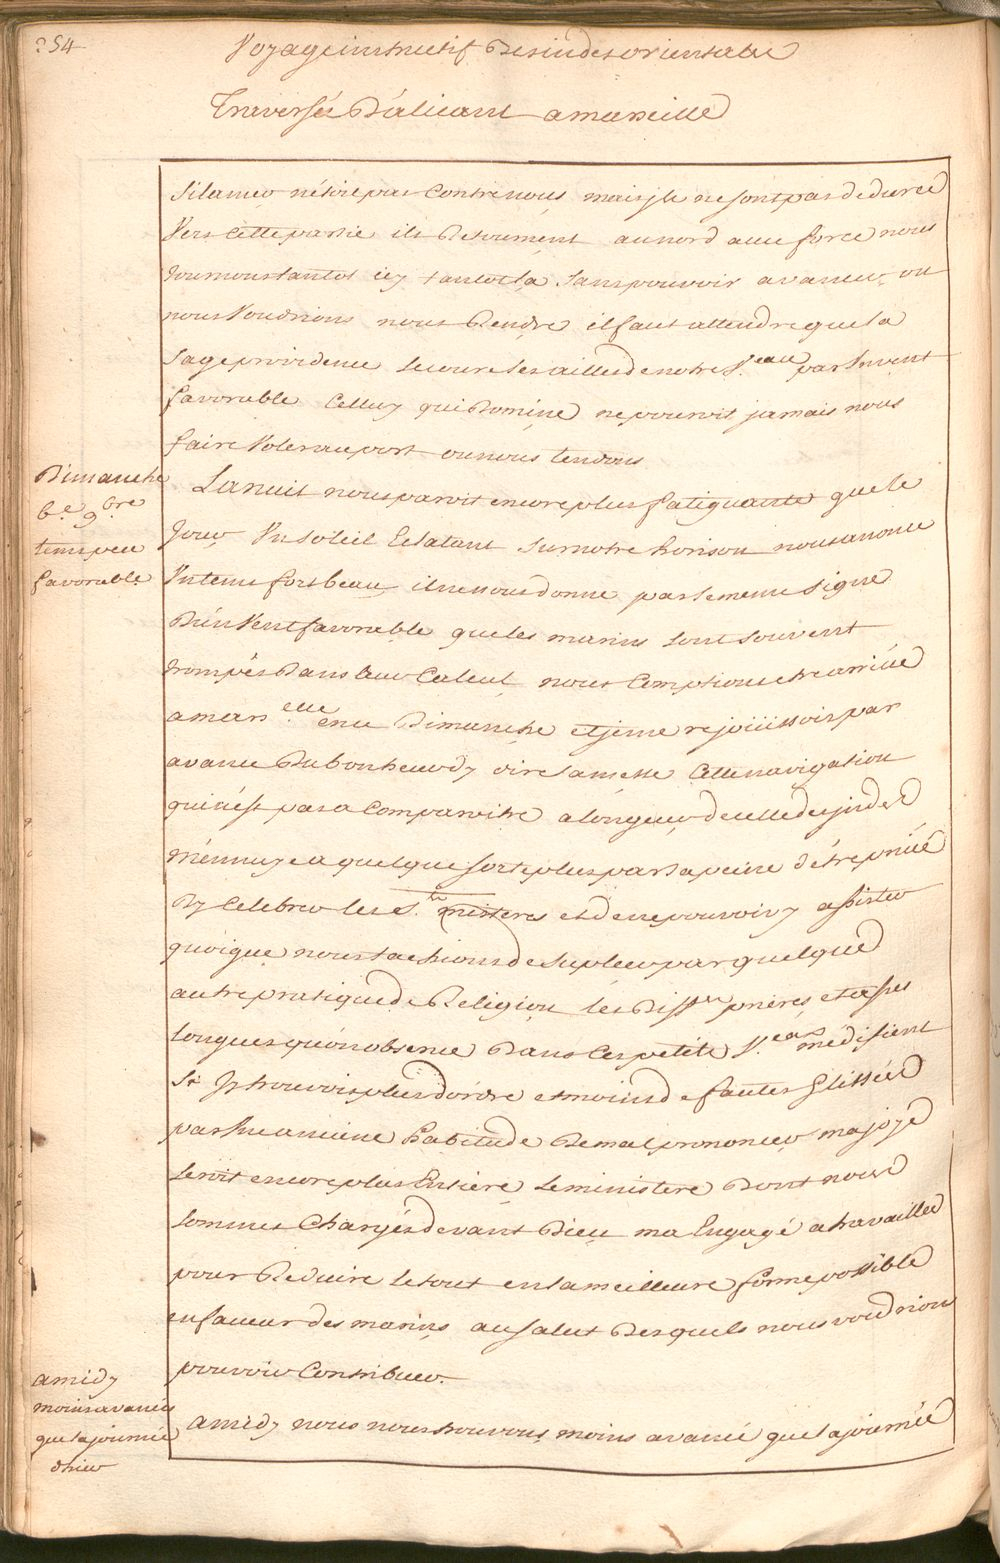 254
Voyage instructif Des indes orientale
Traversée D'alicant a marseille
si la mer n'étoit pas Contre nous, mais ils ne sont pas de durée
Vers cette partie ils Retournent au nord avec force nous
tournons tantot icy tantot la sans pouvoir avancer ou
nous Voudrions nous Rendre il faut attendre que la
sage providence secoure les ailles de notre V.eau par un vent
favorable Celluy qui Domine ne pouroit jamais nous
faire Voler au port ou nous tendons
Dimanche
6.e 9.bre
tems peu
favorable
La nuit nous paroit encore plus fatiguante que le
Jour, Un soleil Eclatant sur notre horison nous anonce
Un tems fort beau, il ne nous donne pas le meme signe
D'un Vent favorable que les marins sont souvent
trompés Dans leur Calcul, nous Comptions etre arrivé
a mars.elle ence Dimanche et je me rejoüissois par
avance Du bonheur d'y dire la messe Cette navigation
qui n'est pas a Comparoitre a longueur de celle des indes
m'ennuye a quelque sorte plus par la peine d'étre privé
D'y Celebrer les S.ts misteres et de ne pouvoir y assister
quoique nous tachions de supleer par quelque
autre pratique de Religion, les Diff.tes prières et assés
longues qu'on observe Dans Ces petits V.eaux medifient
Si J'y trouvois plus D'ordre et moins de fautes Glissées
par une anciene habitude De mal prononcer, ma joye
seroit encore plus Entiere le ministere Dont nous
sommes Chargés devant Dieu, ma Engagé a travailler
pour Reduire le tout en la meilleure forme possible
en faveur des marins, au salut Desquels nous voudrions
pouvoir Contribuer.
a midy
moins avancés
que la journée
d'hier
a midy nous nous trouvons, moins avancé que la journée